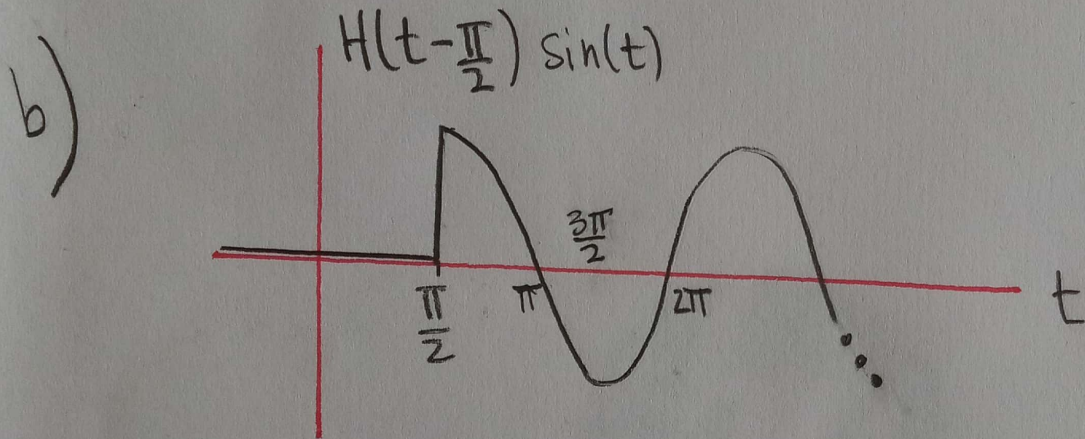 b)
H(t-π/2) sin(t)
3π/2
π/2
π
2π
t